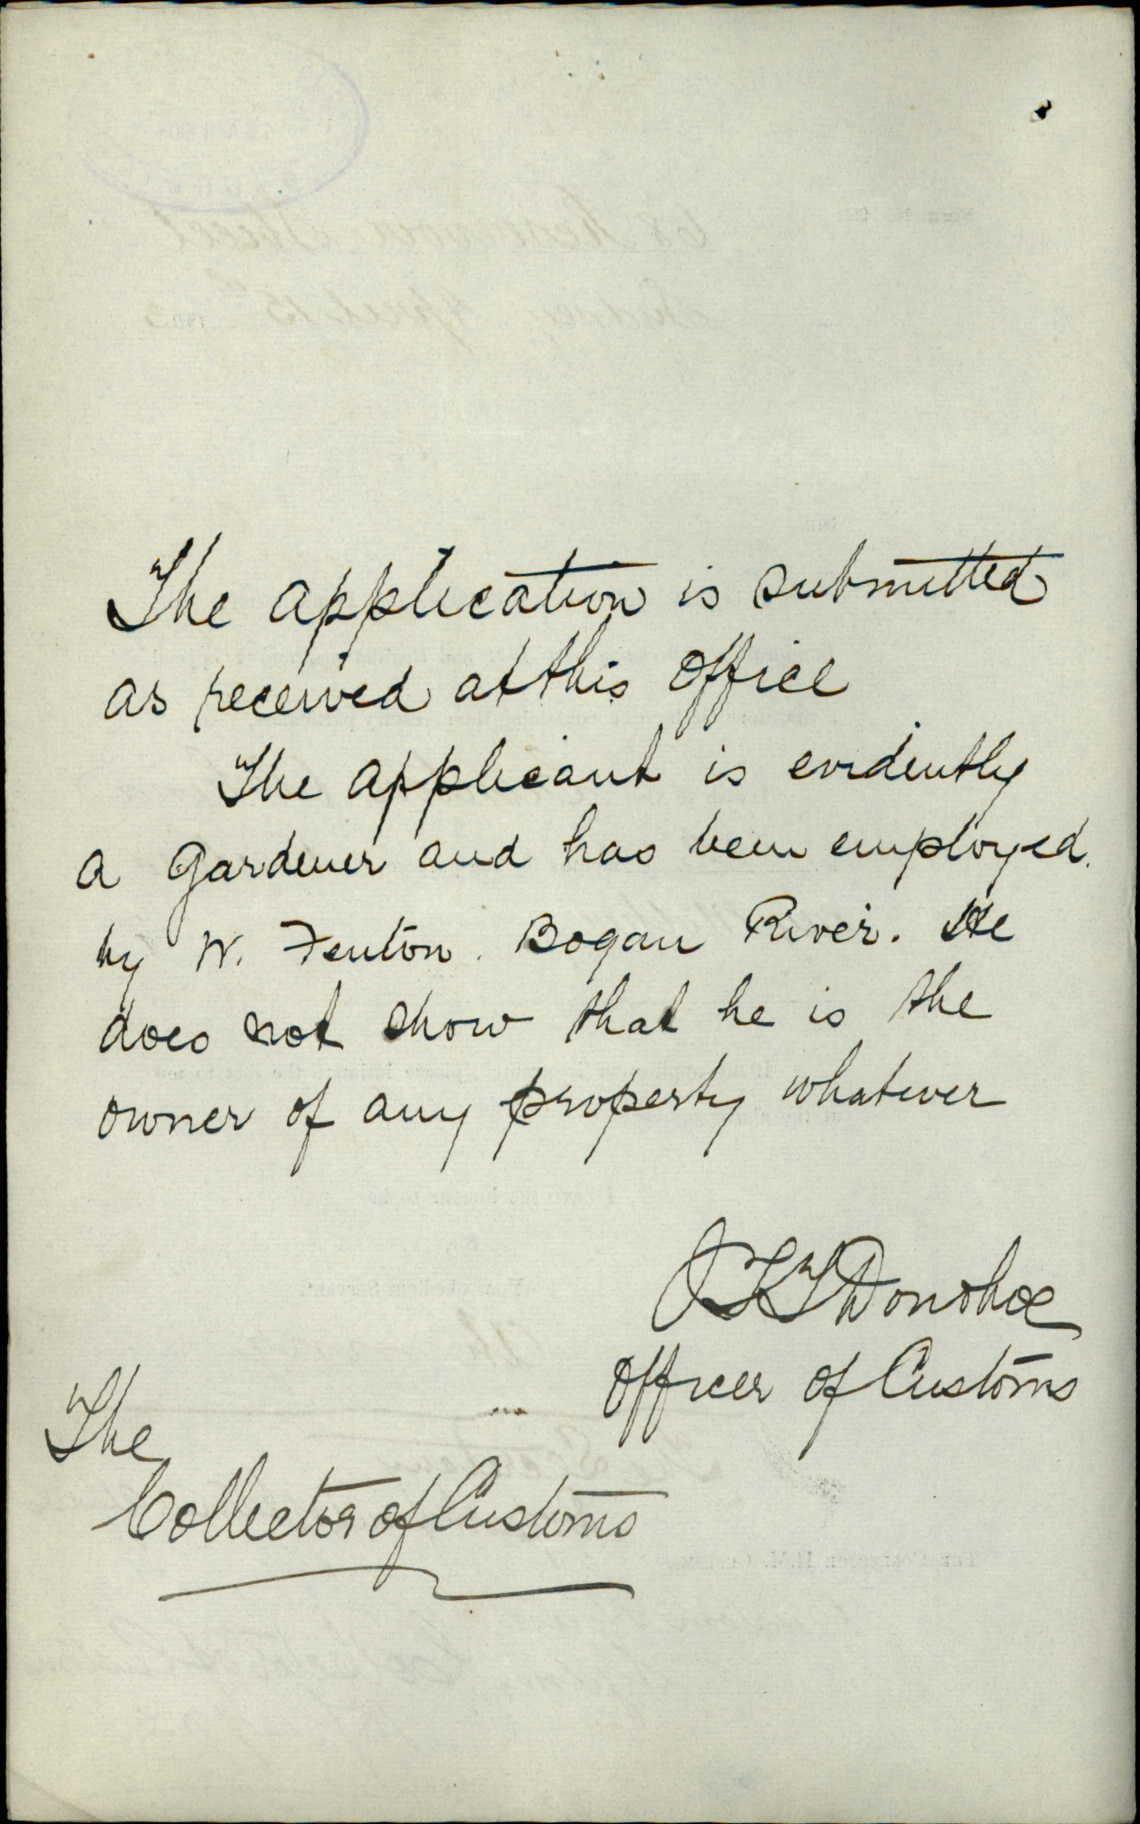 The application is submitted
as received at this office
The applicant is evidently
a Gardener and has been employed
by W. Fenton. Bogan River. He
does not show that he is the
owner of any property whatever
J T T Donohoe
Officer of Customs
The
Collector of Customs